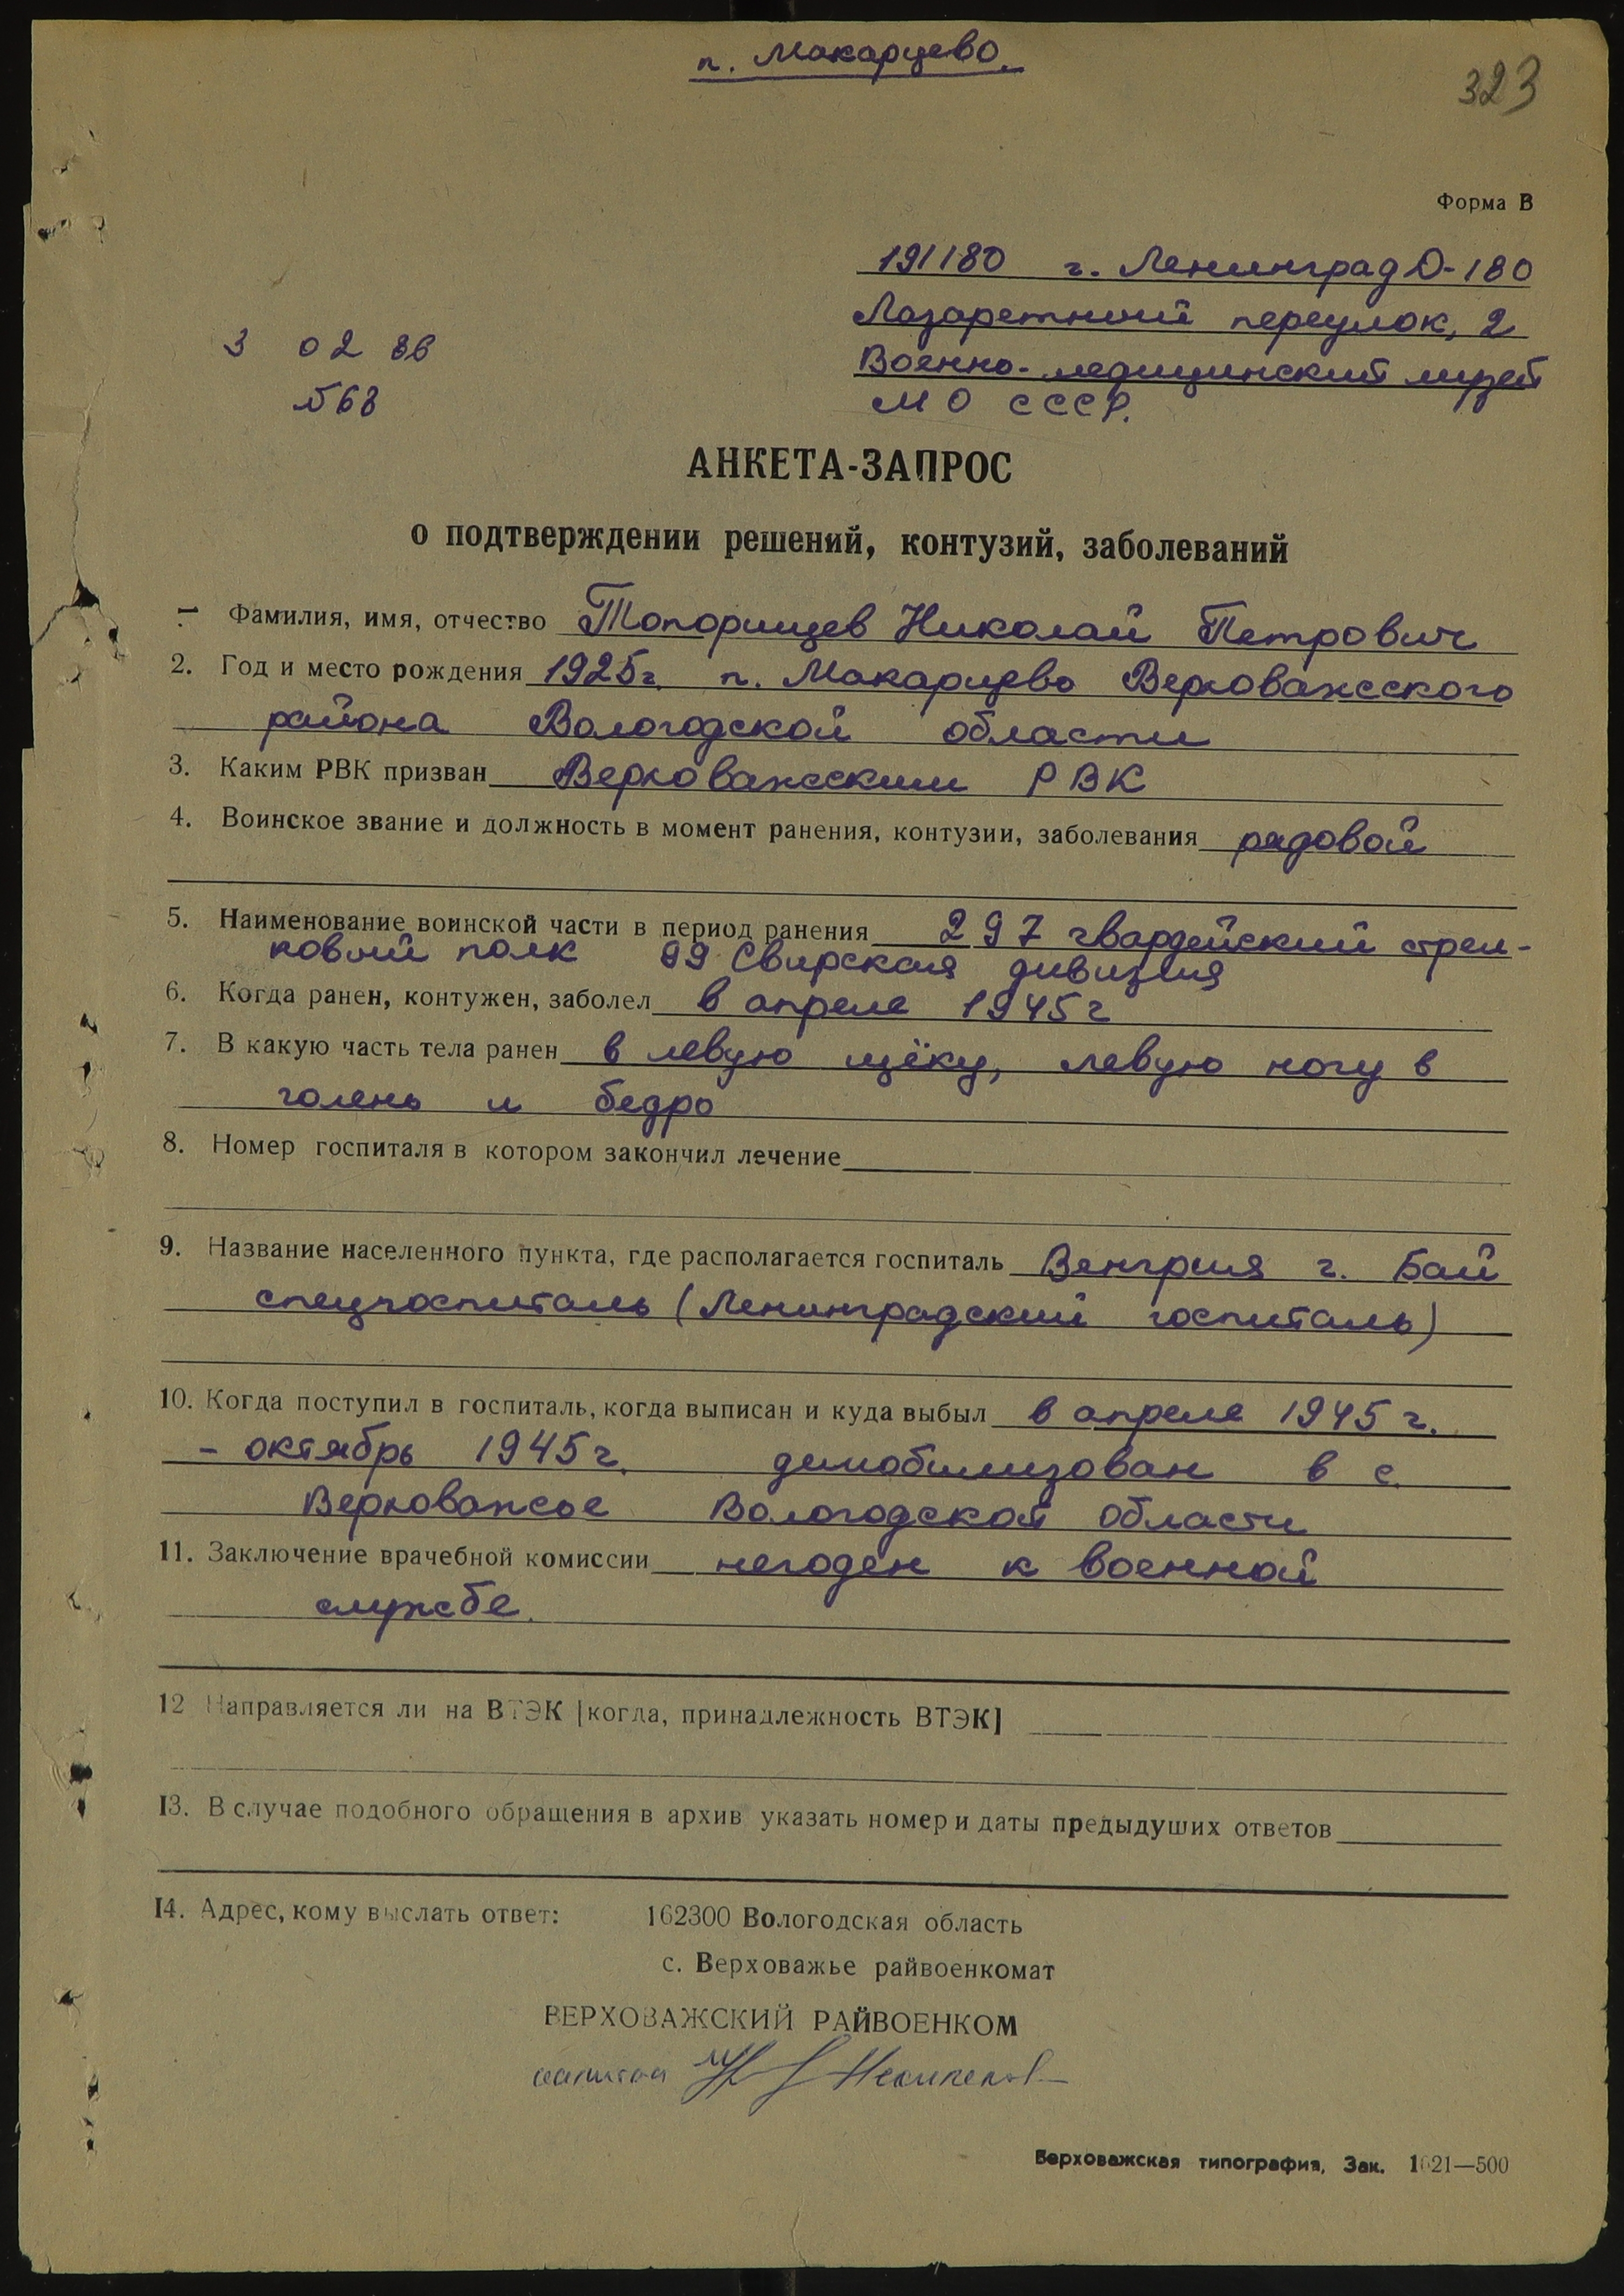 п. Макарцево.
323
Форма В
191180 г. Ленинград Д-180
Лазаретный переулок, 2
Военно-медицинский музей
МО СССР.
3 02 86
№68
АНКЕТА-ЗАПРОС
о подтверждении решений, контузий, заболеваний
1 Фамилия, имя, отчество Топорищев Николай Петрович
2. Год и место рождения 1925г. п. Макарцево Верховажского
района Вологодской области
3. Каким РВК призван Верховажским РВК
4. Воинское звание и должность в момент ранения, контузии, заболевания рядовой
5. Наименование воинской части в период ранения 297 гвардейский стрел-
ковый полк 99 Свирская дивизия
6. Когда ранен, контужен, заболел в апреле 1945г
7. В какую часть тела ранен в левую щёку, левую ногу в
голень и бедро
8. Номер госпиталя в котором закончил лечение
9. Название населенного пункта, где располагается госпиталь Венгрия г. Бай
спецгоспиталь (Ленинградский госпиталь)
10. Когда поступил в госпиталь, когда выписан и куда выбыл в апреле 1945 г.
- октябрь 1945г. демобилизован в с.
Верховажье Вологодской области
11. Заключение врачебной комиссии негоден к военной
службе.
12 Направляется ли на ВТЭК [когда, принадлежность ВТЭК]
13. В случае подобного обращения в архив указать номер и даты предыдуших ответов
14. Адрес, кому выслать ответ: 162300 Вологодская область
с. Верховажье райвоенкомат
ВЕРХОВАЖСКИЙ РАЙВОЕНКОМ
капитан
Верховажская типография, Зак. 1621—500